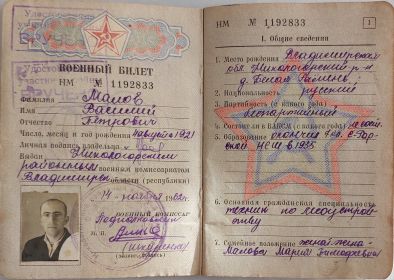 Удостоверение
участника войны
ВРУЧЕНО
ВОЕННЫЙ БИЛЕТ
НМ № 1192833
Фамилия Малов
Имя Василий
Отчество Петрович
Число, месяц и год рождения августа 1921
Личная подпись владельца
Выдан Никологорским
районным военным комиссариатом
Владимирской области (республики)
14 ноября
ВОЕННЫЙ КОМИССАР
Подполковник
М. П.
НМ № 1192833
1
I. Общие сведения
1. Место рождения Владимирская
обл. Никологорский р-н
2. Национальность русский
3. Партийность (с какого года)
беспартийный
4. Состоял в ВЛКСМ (с какого года) не сост.
5. Образование окончил 7 кл.
НСШ в 1935
6. Основная гражданская специальность
техник по лесоустрой-
ству
7. Семейное положение женат жена-
Малова Мария Тимофеевна